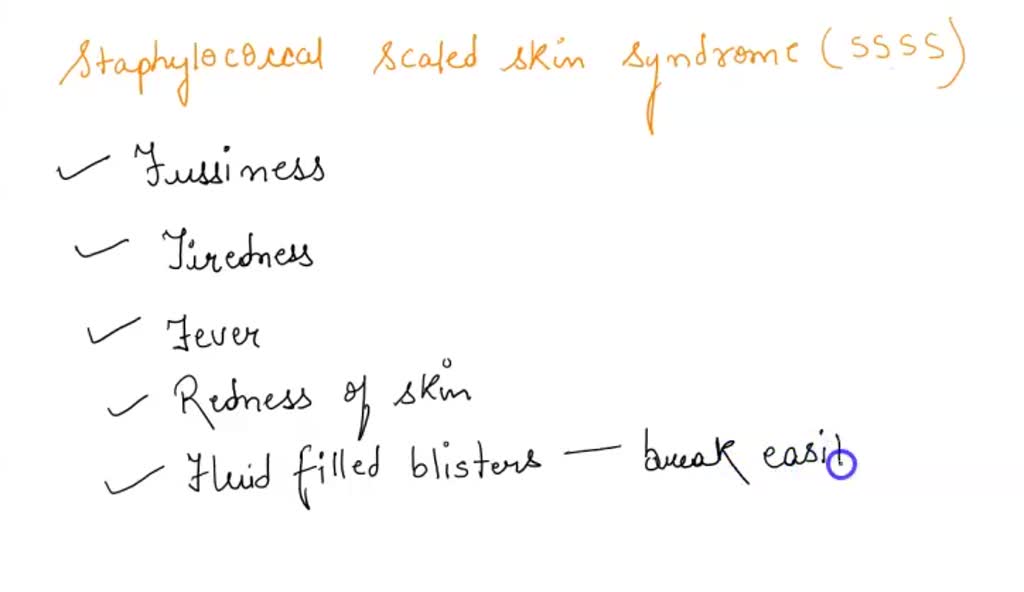 Staphylococcal scaled skin syndrome (SSSS)
Fussiness
Tiredness
Fever
Redness of skin
Fluid filled blisters — break easil